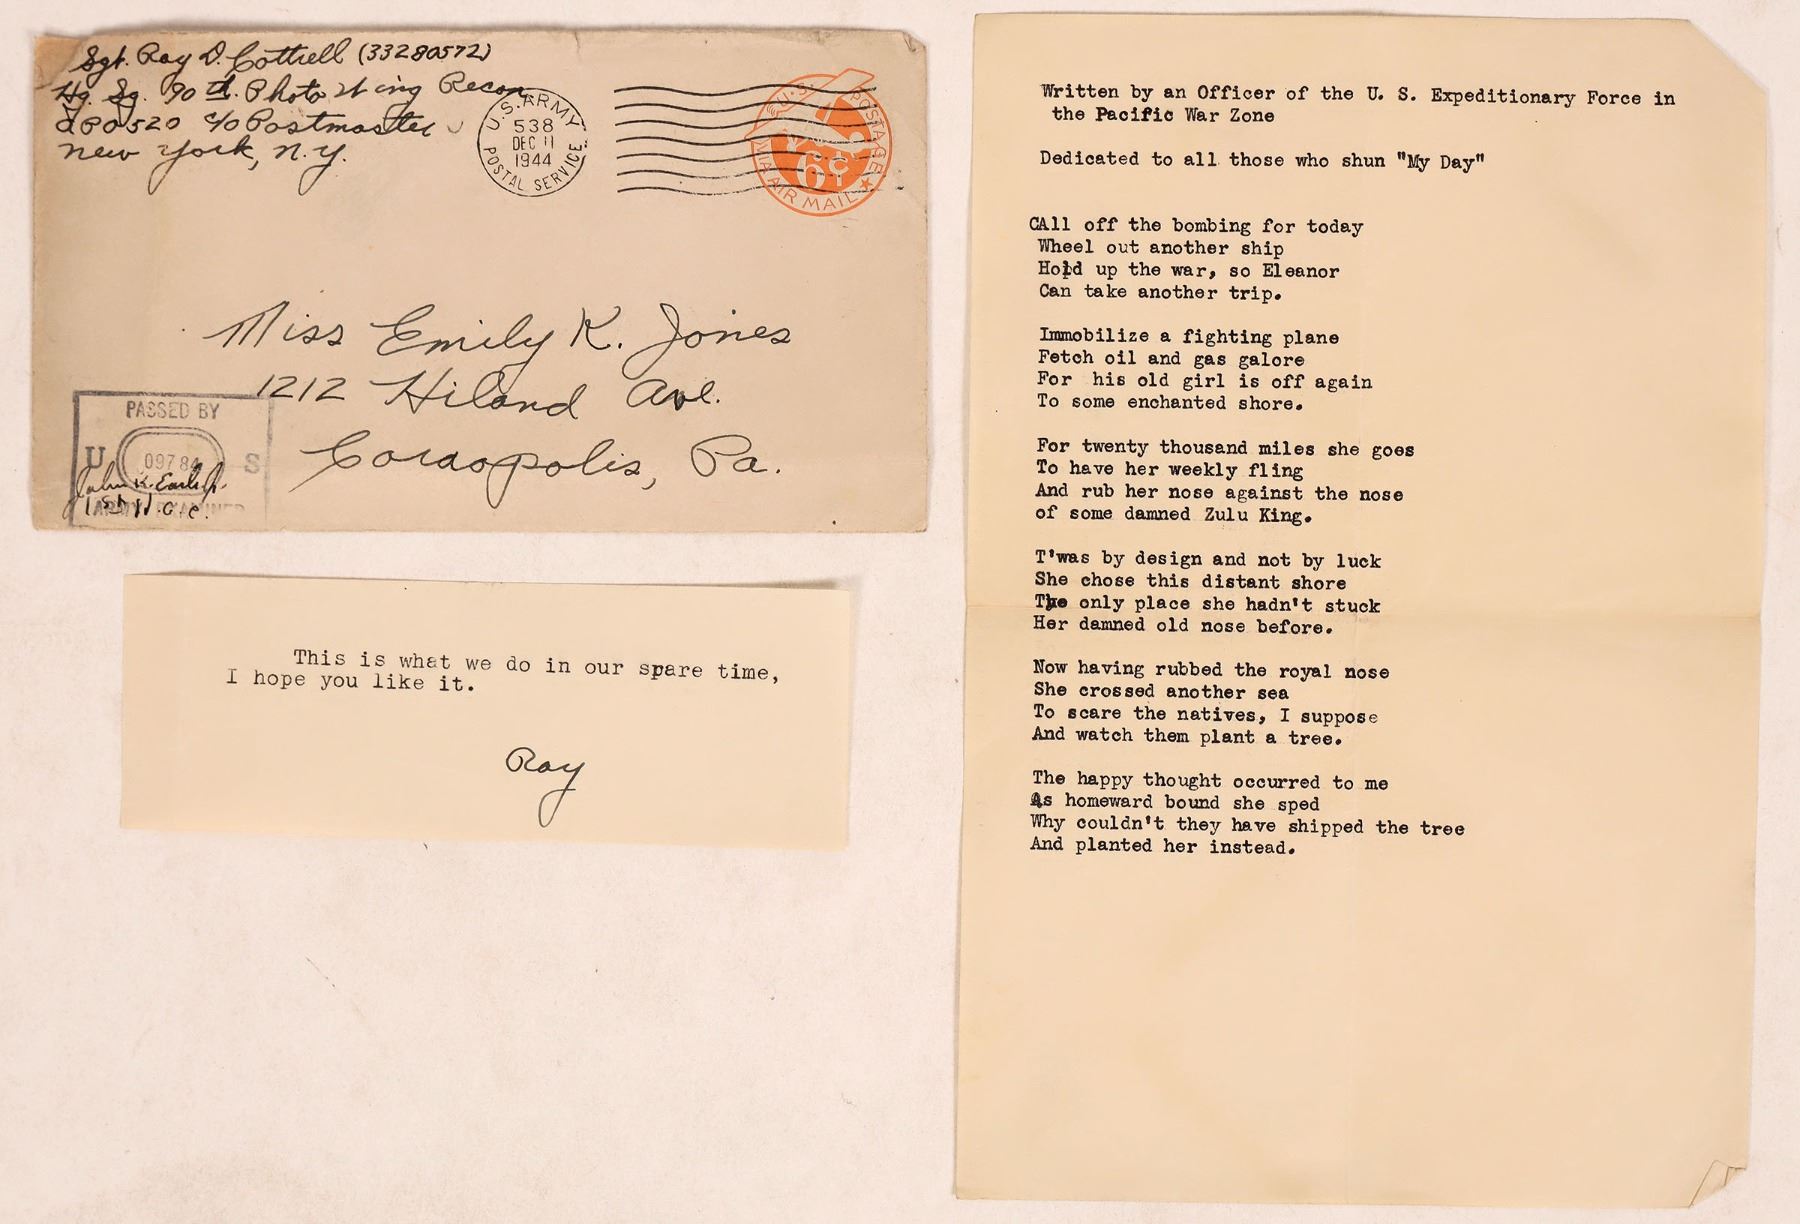 Sgt. Ray D. Cottrell (33280572)
Hq. Sq. 90th. Photo Wing Recon
APO 520 c/o Postmaster
New York, N.Y.
U.S. ARMY
538
DEC 11
1944
POSTAL SERVICE
U.S. POSTAGE
6¢
VIA AIR MAIL
Miss Emily K. Jones
1212 Hiland Ave.
Coraopolis, Pa.
PASSED BY
U 09784 S
John K. Earle Jr.
ARMY EXAMINER
This is what we do in our spare time,
I hope you like it.
Ray
Written by an Officer of the U. S. Expeditionary Force in
the Pacific War Zone
Dedicated to all those who shun "My Day"
CAll off the bombing for today
Wheel out another ship
Hold up the war, so Eleanor
Can take another trip.
Immobilize a fighting plane
Fetch oil and gas galore
For his old girl is off again
To some enchanted shore.
For twenty thousand miles she goes
To have her weekly fling
And rub her nose against the nose
of some damned Zulu King.
T'was by design and not by luck
She chose this distant shore
The only place she hadn't stuck
Her damned old nose before.
Now having rubbed the royal nose
She crossed another sea
To scare the natives, I suppose
And watch them plant a tree.
The happy thought occurred to me
As homeward bound she sped
Why couldn't they have shipped the tree
And planted her instead.